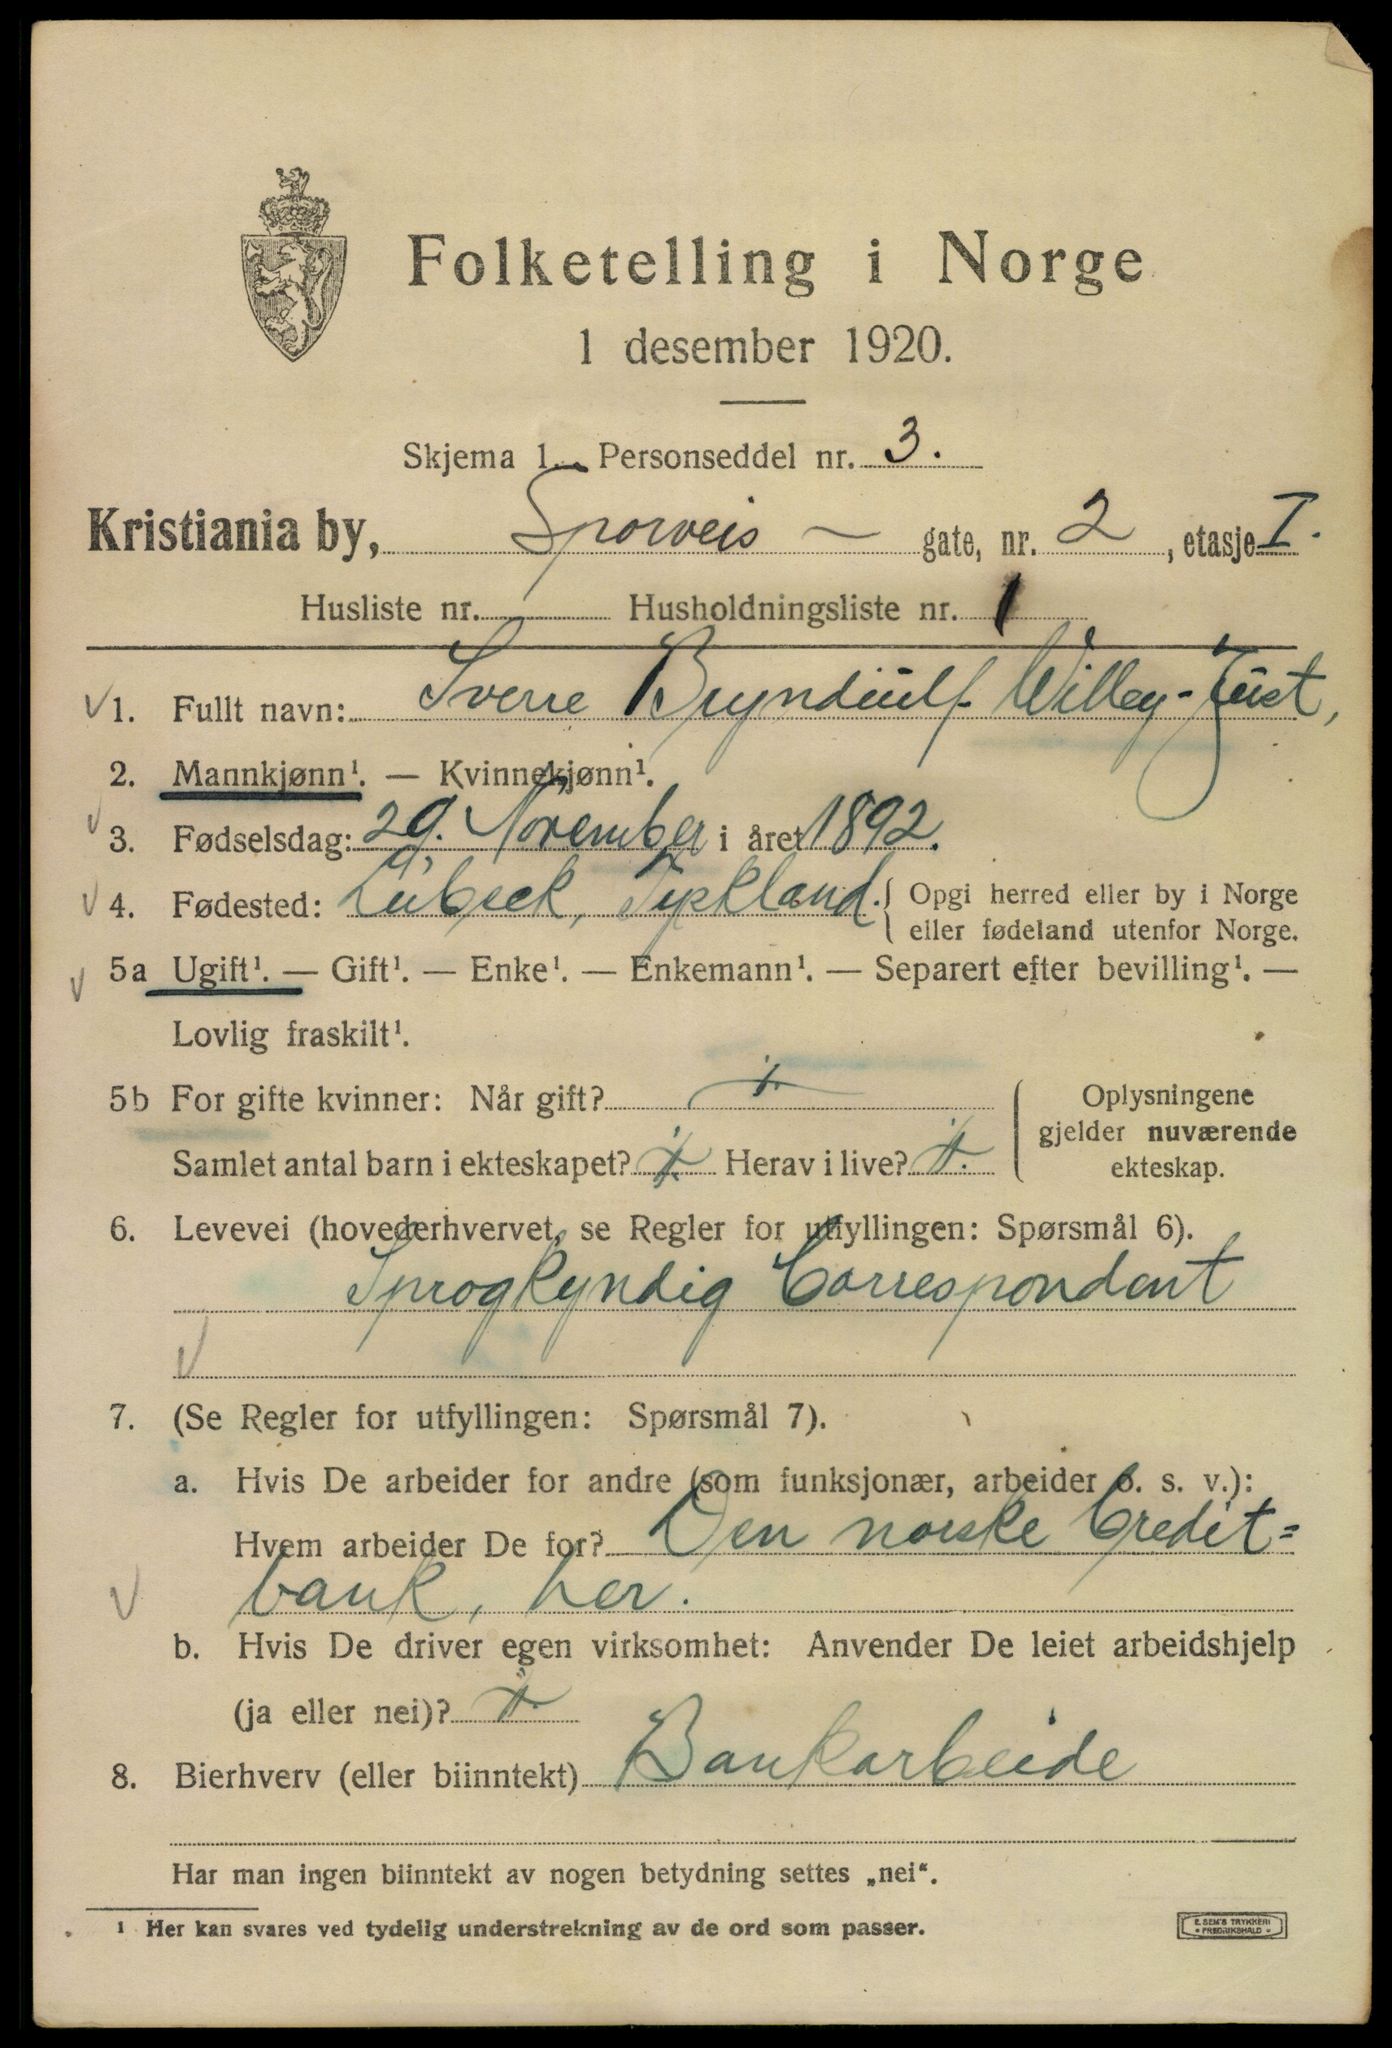 Folketelling i Norge
1 desember 1920.
Skjema 1. Personseddel nr. 3.
Kristiania by, Sporveis - gate, nr. 2, etasje I.
Husliste nr. Husholdningsliste nr. 1
1. Fullt navn: Sverre Bryndiulf Willey-Just,
2. Mannkjønn¹. — Kvinnekjønn¹.
3. Fødselsdag: 29. November i året 1892.
4. Fødested: Lübeck, Tyskland. Opgi herred eller by i Norge
eller fødeland utenfor Norge.
5a Ugift¹. — Gift¹. — Enke¹. — Enkemann¹. — Separert efter bevilling¹. —
Lovlig fraskilt¹.
5b For gifte kvinner: Når gift? ⁒
Samlet antal barn i ekteskapet? ⁒ Herav i live? ⁒
Oplysningene
gjelder nuværende
ekteskap.
6. Levevei (hovederhvervet, se Regler for utfyllingen: Spørsmål 6).
Sprogkyndig Correspondent
7. (Se Regler for utfyllingen: Spørsmål 7).
a. Hvis De arbeider for andre (som funksjonær, arbeider o. s. v.):
Hvem arbeider De for? Den norske Credit=
bank, her.
b. Hvis De driver egen virksomhet: Anvender De leiet arbeidshjelp
(ja eller nei)? ⁒
8. Bierhverv (eller biinntekt) Bankarbeide
Har man ingen biinntekt av nogen betydning settes „nei“.
¹ Her kan svares ved tydelig understrekning av de ord som passer.
E. SEM'S TRYKKERI
FREDRIKSHALD